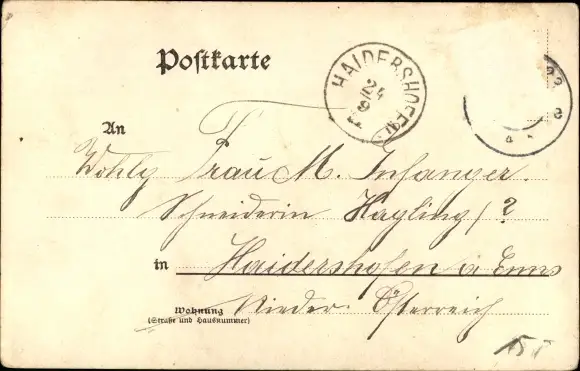 Postkarte
HAIDERSHOFEN
24
9
An
Wohlg Frau M. Infanger.
Schneiderin Hayling / ?
in Haidershofen a Enns
Wohnung Nieder. Österreich
(Straße und Hausnummer)